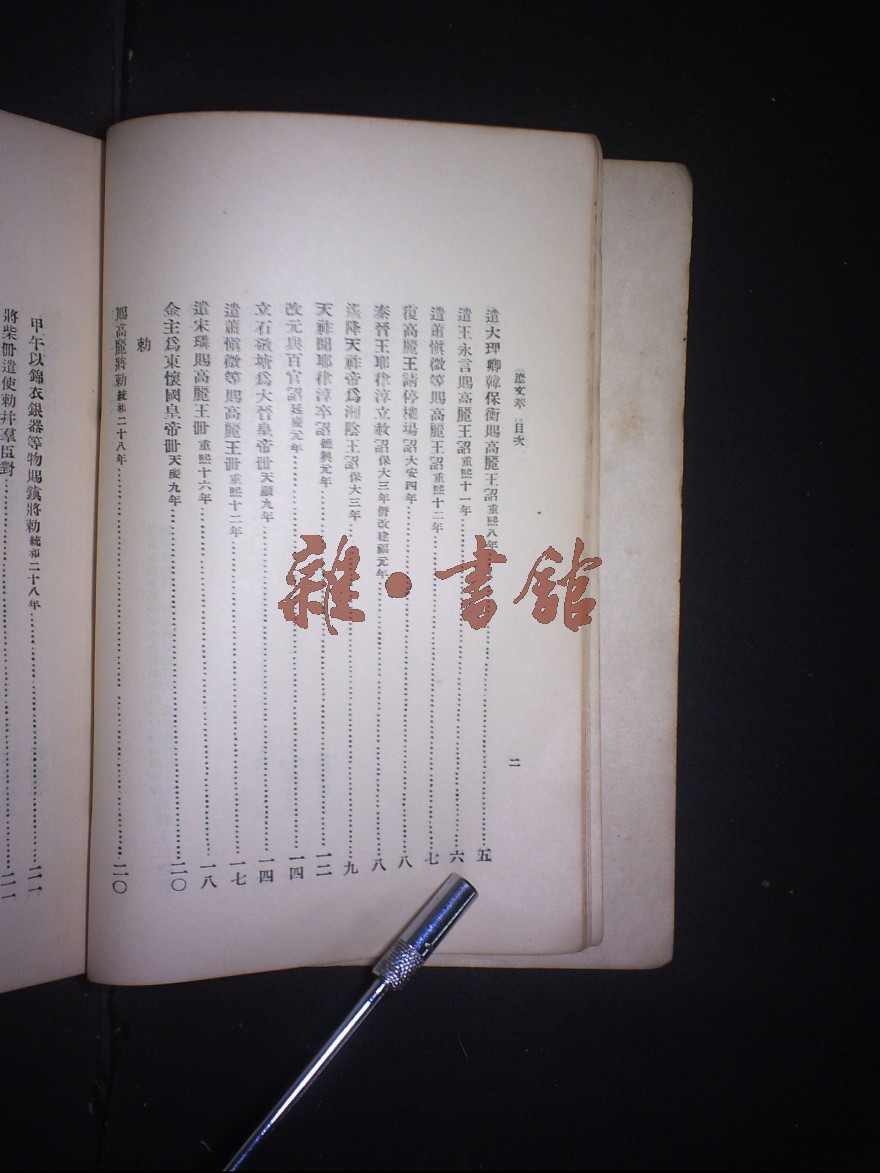 遼文萃 目次 二
遣大理卿韓保衡賜高麗王詔重熙八年……五
遣王永言賜高麗王詔重熙十一年……六
遣蕭愼微等賜高麗王詔重熙十二年……七
復高麗王請停榷場詔大安四年……八
秦晉王耶律淳立赦詔保大三年僭改建福元年……八
落降天祚帝爲湘陰王詔保大三年……九
天祚聞耶律淳卒詔德興元年……一二
改元與百官詔延慶元年……一四
立石敬塘爲大晉皇帝冊天顯九年……一四
遣蕭愼微等賜高麗王冊重熙十二年……一七
遣宋璘賜高麗王冊重熙十六年……一八
金主爲東懷國皇帝冊天慶九年……二〇
勅
賜高麗將勅統和二十八年……二〇
甲午以錦衣銀器等物賜鎭將勅統和二十八年……二一
將柴冊遣使勅幷羣臣對……二一
雜·書館